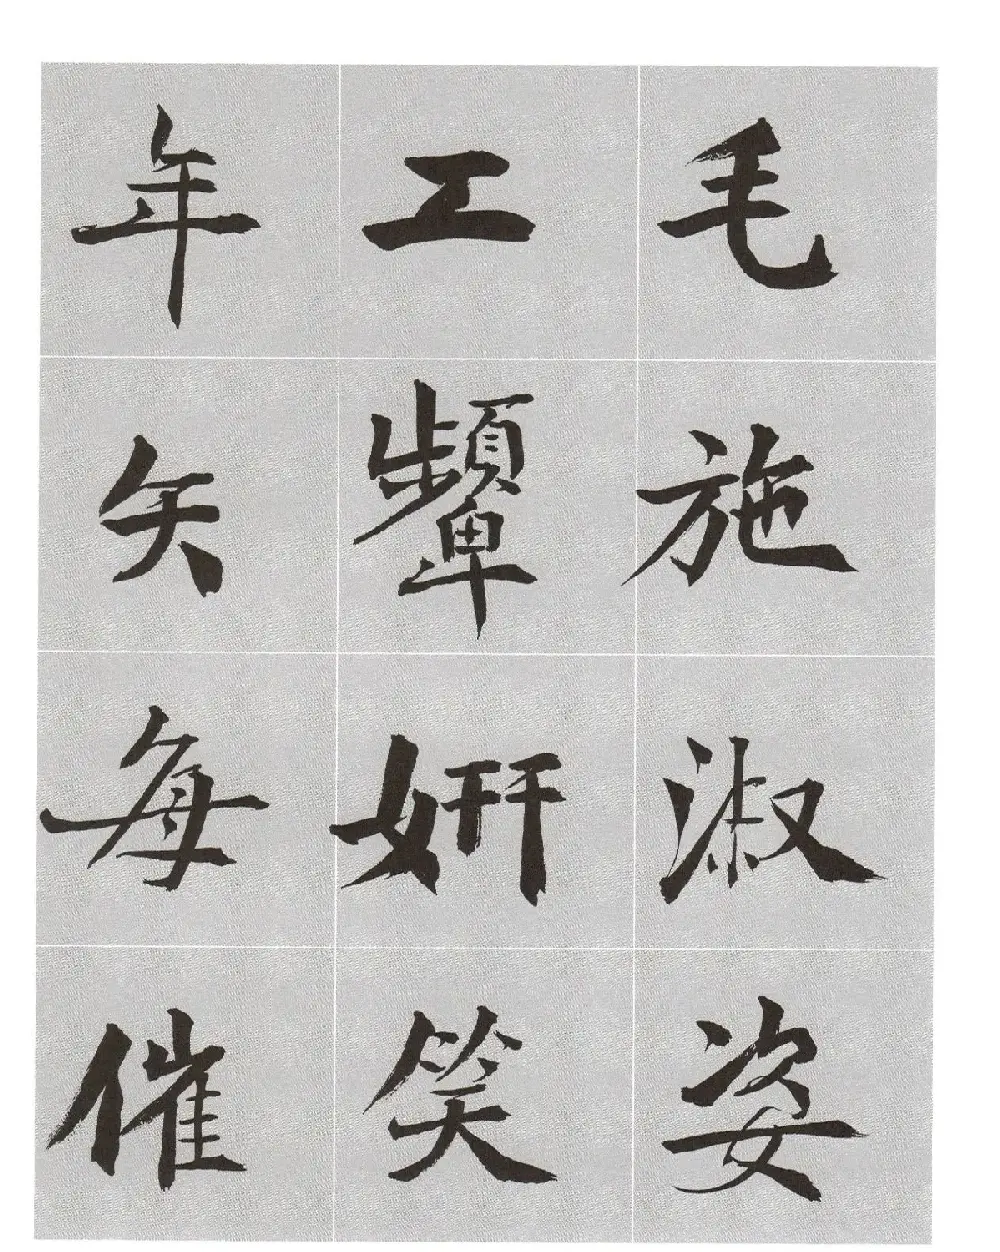 毛施淑姿
工顰妍笑
年矢每催